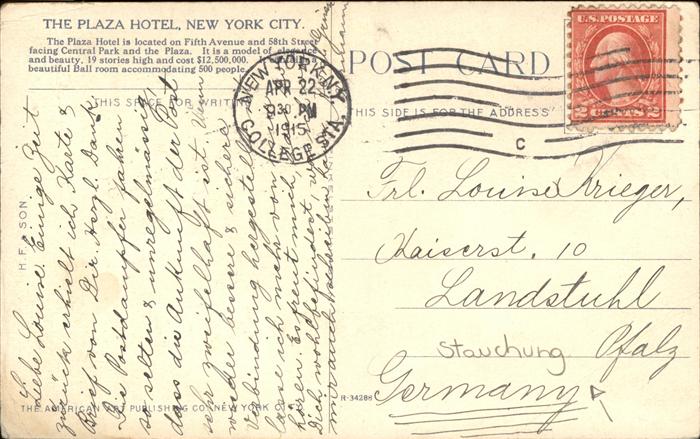 THE PLAZA HOTEL, NEW YORK CITY.
The Plaza Hotel is located on Fifth Avenue and 58th Street
facing Central Park and the Plaza. It is a model of elegance
and beauty, 19 stories high and cost $12,500,000.
beautiful Ball room accommodating 500 people
THIS SPACE FOR WRITING
H. F. & SON
Liebe Louise! Einige Zeit
zurück erhielt ich Karte &
Brief von Dir. Herzl. Dank.
Die Postdampfer fahren
so selten & unregelmässig
dass die Ankunft der Post
sehr zweifelhaft ist. Wenn
wieder bessere & sichere
Verbindung hergestellt
lasse ich mehr von
hören. Es freut mich,
Dich wohlbefindest, 
mir auch
THE AMERICAN ART PUBLISHING CO. NEW YORK
R-34288
POST CARD
THIS SIDE IS FOR THE ADDRESS
NEW YORK, N.Y.
APR 22
930 PM
1915
COLLEGE STA.
C
U.S. POSTAGE
2 CENTS 2
Frl. Louise Krieger,
Kaiserst. 10
Landstuhl
Stauchung
Pfalz
Germany